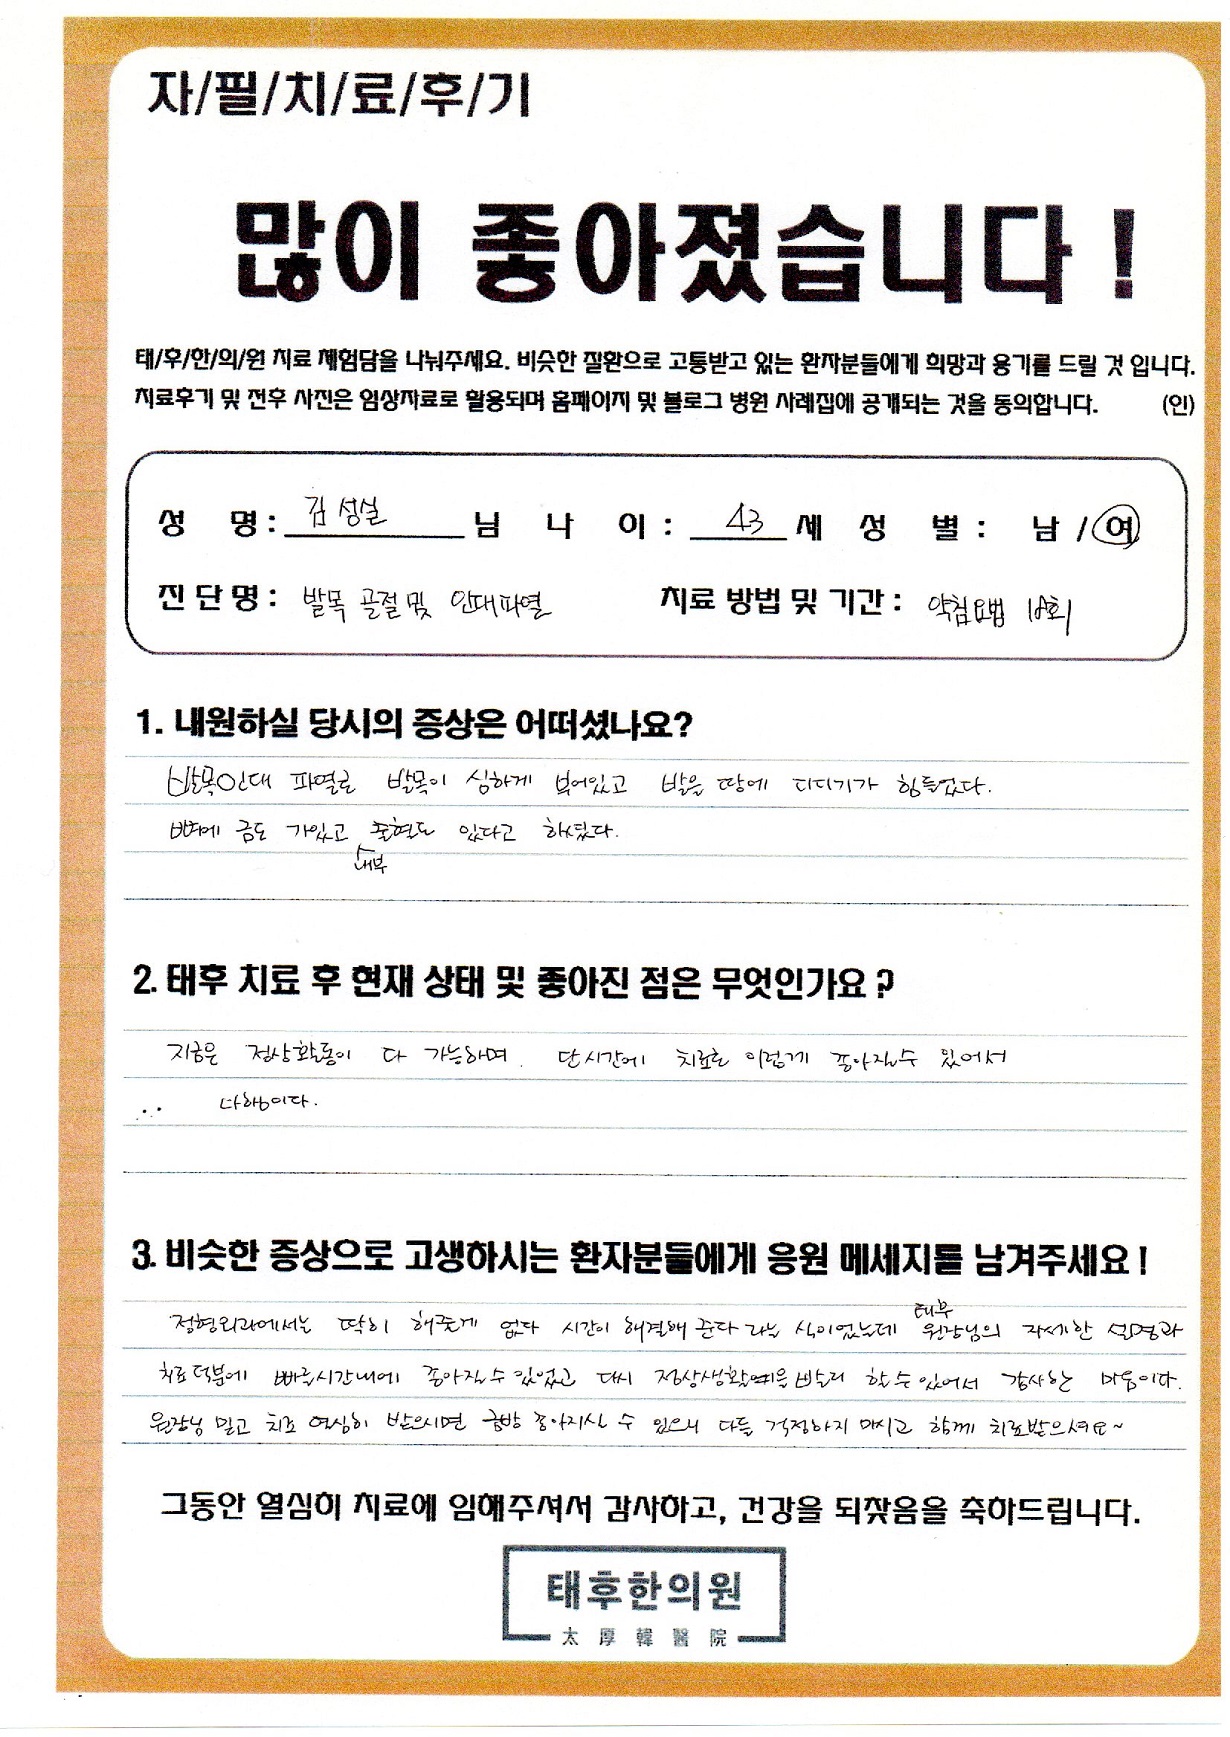 자/필/치/료/후/기
많이 좋아졌습니다 !
태/후/한/의/원 치료 체험담을 나눠주세요. 비슷한 질환으로 고통받고 있는 환자분들에게 희망과 용기를 드릴 것 입니다.
치료후기 및 전후 사진은 임상자료로 활용되며 홈페이지 및 블로그 병원 사례집에 공개되는 것을 동의합니다. (인)
성 명 : 김성실 님 나 이 : 43 세 성 별 : 남 / 여
진 단 명 : 발목 골절 및 인대파열 치료 방법 및 기간 : 약침요법 18회
1. 내원하실 당시의 증상은 어떠셨나요?
발목인대 파열로 발목이 심하게 부어있고 발을 땅에 디디기가 힘들었다.
뼈에 금도 가있고 출혈도 있다고 하셨다.
내부
2. 태후 치료 후 현재 상태 및 좋아진 점은 무엇인가요 ?
지금은 정상활동이 다 가능하며. 단시간에 치료로 이렇게 좋아질수 있어서
다행이다.
3. 비슷한 증상으로 고생하시는 환자분들에게 응원 메세지를 남겨주세요 !
태후
정형외과에서는 딱히 해줄게 없다 시간이 해결해 준다 라는 식이었는데 원장님의 자세한 설명과
치료 덕분에 빠른시간내에 좋아질수 있었고 다시 정상생활 빨리 할수 있어서 감사한 마음이다.
원장님 믿고 치료 열심히 받으시면 금방 좋아지실 수 있으니 다들 걱정하지 마시고 함께 치료받으셔요~
그동안 열심히 치료에 임해주셔서 감사하고, 건강을 되찾음을 축하드립니다.
태후한의원
太厚韓醫院